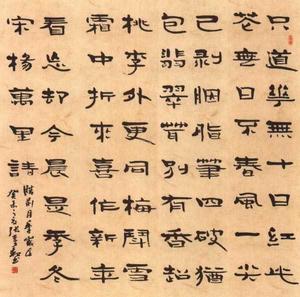 只道華無十日紅此
花無日不春風一尖
已剥胭脂筆四破猶
包翡翠茸別有香超
桃李外更同梅鬥雪
霜中折來喜作新年
看忘却今晨是季冬
宋楊萬里詩
臘前月季
癸未